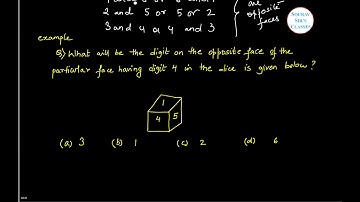 2 and 5 or 5 or 2
3 and 4 or 4 and 3
are opposite faces
SOURAV SIR'S CLASSES
example
Q) What will be the digit on the opposite face of the
particular face having digit 4 in the dice is given below ?
1
4 5
(a) 3 (b) 1 (c) 2 (d) 6